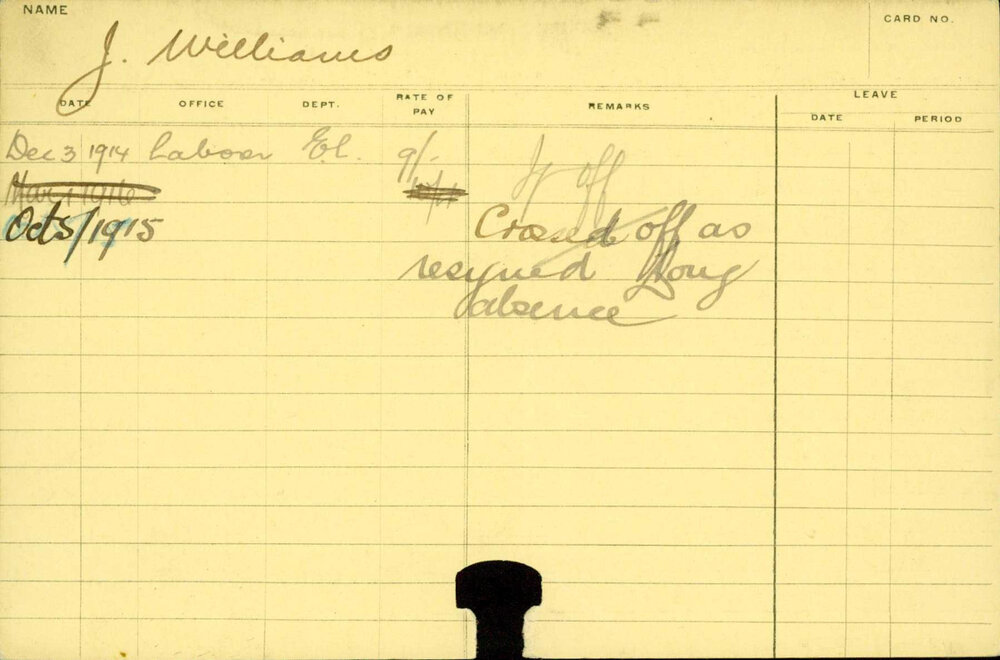 NAME
CARD NO.
J. Williams
DATE OFFICE DEPT. RATE OF PAY REMARKS LEAVE
DATE PERIOD
Dec 3 1914 Labour El. 9/-
off
Mar 1 1916
Oct 5/1915 Crossed off as
resigned long
absence